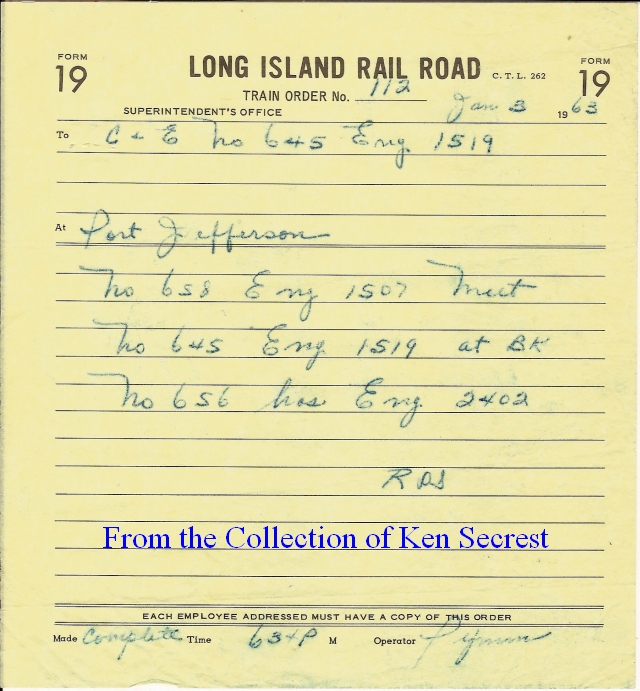 FORM 19
LONG ISLAND RAIL ROAD C. T. L. 262
FORM 19
TRAIN ORDER No. 112
Jan 3 1963
SUPERINTENDENT'S OFFICE
To C & E No 645 Eng 1519
At Port Jefferson
No 658 Eng 1507 Meet
No 645 Eng 1519 at BK
No 656 has Eng 2402
RDS
From the Collection of Ken Secrest
EACH EMPLOYEE ADDRESSED MUST HAVE A COPY OF THIS ORDER
Made Complete Time 634P M Operator